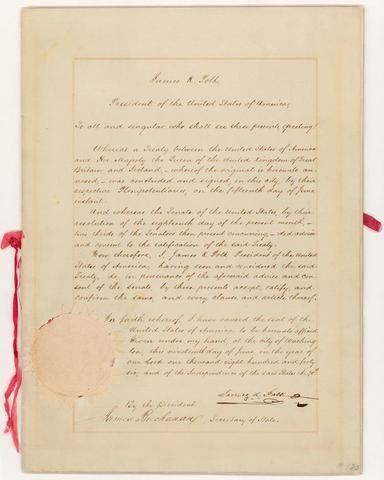 James K. Polk
President of the United States of America,
To all and singular who shall see these presents, Greeting!
Whereas a Treaty between the United States of America
and Her Majesty the Queen of the United Kingdom of Great
Britain and Ireland, whereof the original is hereunto an-
nexed, was concluded and signed in this city, by their
respective Plenipotentiaries, on the fifteenth day of June
instant.
And whereas the Senate of the United States, by their
resolution of the eighteenth day of the present month,
two thirds of the Senators then present concurring, did advise
and consent to the ratification of the said Treaty:
Now therefore, I, James K. Polk President of the United
States of America, having seen and considered the said
Treaty, do, in pursuance of the aforesaid advice and con-
sent of the Senate by these presents accept, ratify, and
confirm the same, and every clause and article thereof.
In faith whereof I have caused the seal of the
United States of America to be hereunto affixed
Given under my hand, at the city of Washing
ton, this nineteenth day of June, in the year of
our Lord one thousand eight hundred and forty
six, and of the Independence of the said States the 70th.
James K. Polk
By the President
James Buchanan
Secretary of State.